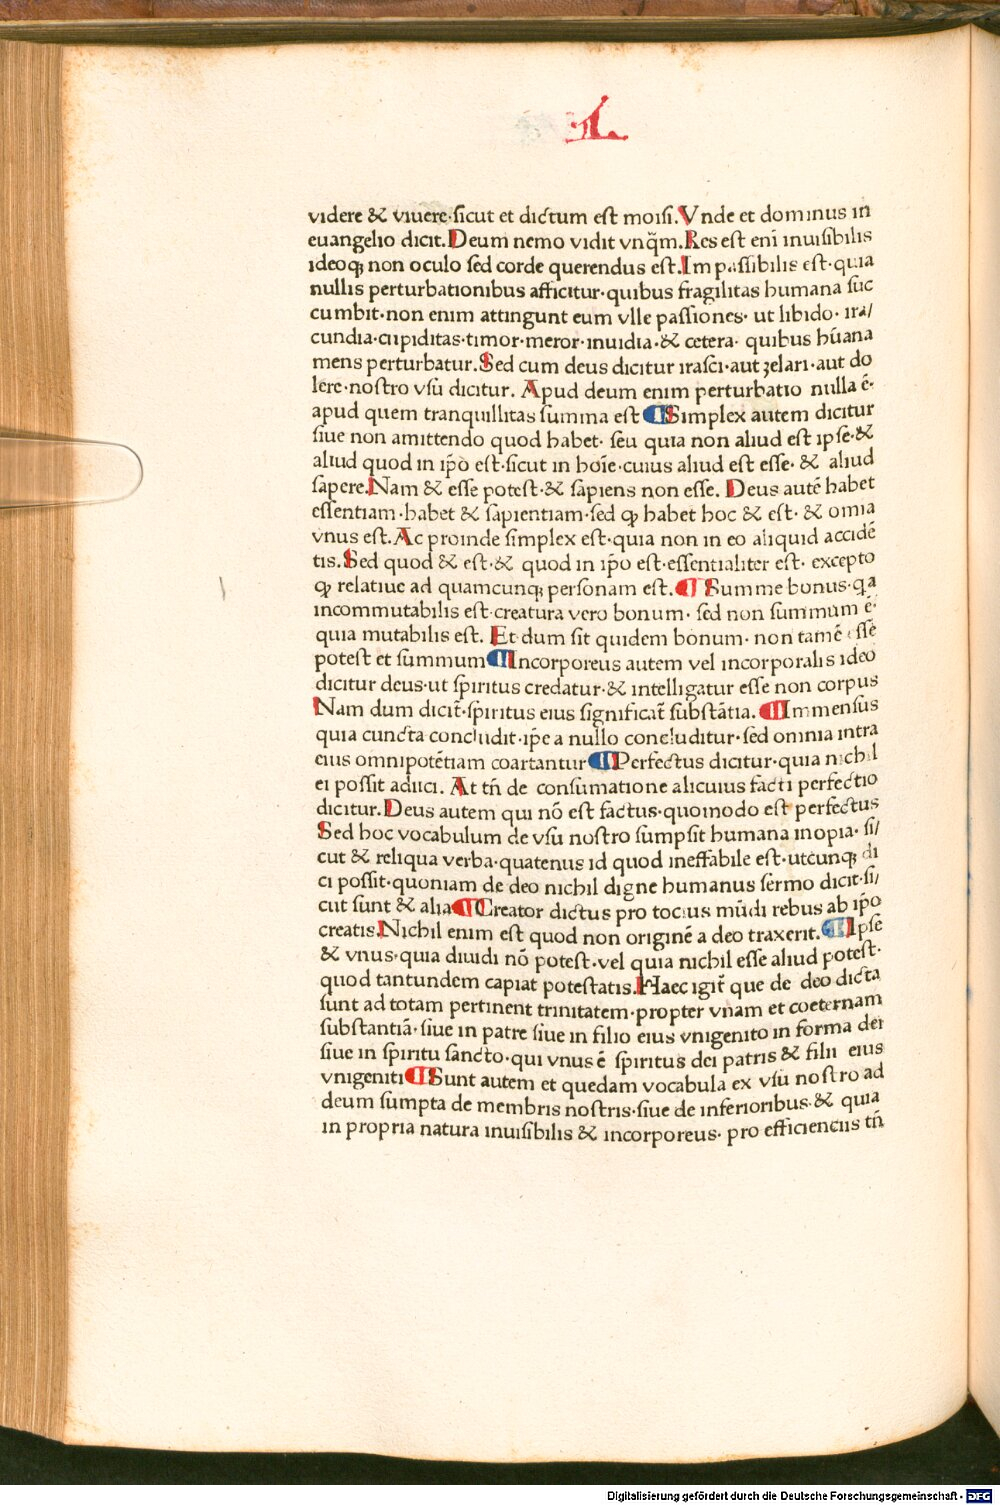 L
videre & viuere·sicut et dictum est moisi.Vnde et dominus in
euangelio dicit.Deum nemo vidit vnq̃m.Res est enĩ inuisibilis
ideoqꝫ non oculo sed corde querendus est.Impassibilis est·quia
nullis perturbationibus afficitur·quibus fragilitas humana suc
cumbit·non enim attingunt eum vlle passiones· ut libido· ira/
cundia·cupiditas·timor·meror·inuidia·& cetera· quibus hũana
mens perturbatur.Sed cum deus dicitur irasci·aut zelari·aut do
lere·nostro vsu dicitur. Apud deum enim perturbatio nulla ē·
apud quem tranquillitas summa est ¶Simplex autem dicitur
siue non amittendo quod habet· seu quia non aliud est ipse·&
aliud quod in ip̄o est·sicut in hoīe·cuius aliud est esse· & aliud
sapere.Nam & esse potest·& sapiens non esse. Deus autē habet
essentiam·habet & sapientiam·sed ꝙ habet hoc & est· & omia
vnus est.Ac proinde simplex est·quia non in eo aliquid accidē
tis.Sed quod & est·& quod in ip̄o est·essentialiter est· excepto
ꝙ relatiue ad quamcunqꝫ personam est. ¶Summe bonus·qa
incommutabilis est·creatura vero bonum· sed non summum ē·
quia mutabilis est. Et dum sit quidem bonum· non tamē esse
potest et summum¶Incorporeus autem vel incorporalis ideo
dicitur deus·ut spiritus credatur·& intelligatur esse non corpus
Nam dum dicit̄·spiritus eius significat̄ substātia. ¶Immensus
quia cuncta concludit·ip̄e a nullo concluditur·sed omnia intra
eius omnipotētiam coartantur¶Perfectus dicitur·quia nichil
ei possit adiici. At tñ de consumatione alicuius facti perfectio
dicitur.Deus autem qui nō est factus·quomodo est perfectus
Sed hoc vocabulum de vsu nostro sumpsit humana inopia· si/
cut & reliqua verba·quatenus id quod ineffabile est·utcunqꝫ di
ci possit·quoniam de deo nichil digne humanus sermo dicit·si/
cut sunt & alia¶Creator dictus pro tocius mūdi rebus ab ip̄o
creatis.Nichil enim est quod non originē a deo traxerit.¶Ipse
& vnus·quia diuidi nō potest·vel quia nichil esse aliud potest·
quod tantundem capiat potestatis.Haec igit̄ que de deo dicta
sunt ad totam pertinent trinitatem·propter vnam et coeternam
substantiā·siue in patre siue in filio eius vnigenito in forma dei
siue in spiritu sancto·qui vnus ē spiritus dei patris & filii eius
vnigeniti¶Sunt autem et quedam vocabula ex vsu nostro ad
deum sumpta de membris nostris·siue de inferioribus·& quia
in propria natura inuisibilis & incorporeus· pro efficienciis tñ
Digitalisierung gefördert durch die Deutsche Forschungsgemeinschaft - DFG